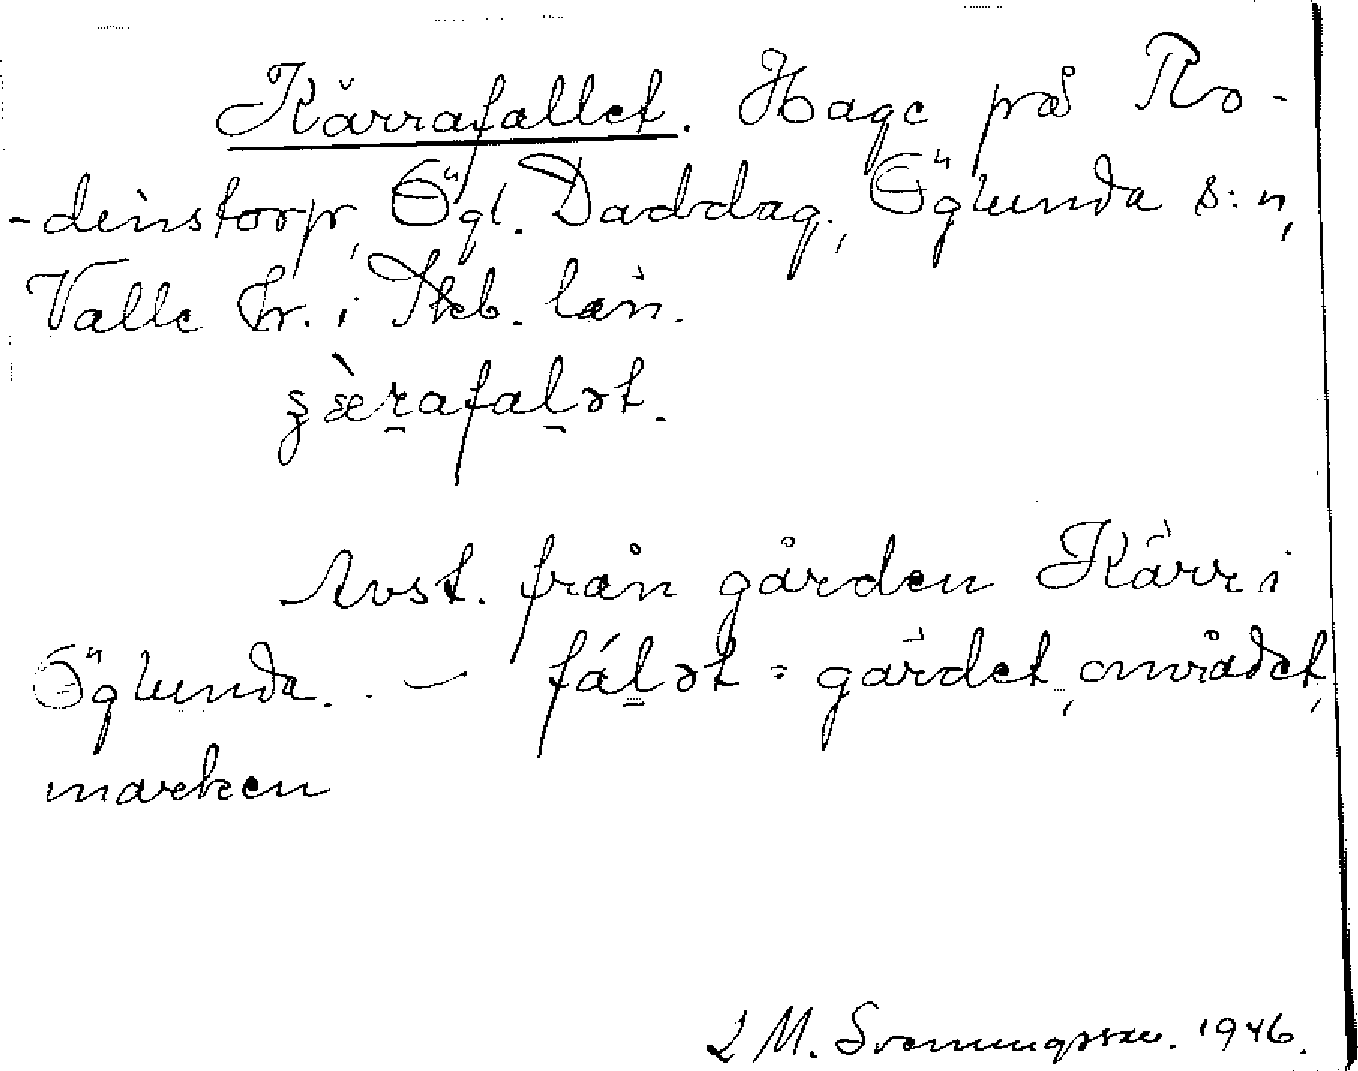 Kärrafallet. Hage på Ro-
-deinstorp, Ögl. Daddag., Öglunda s:n,
Valle hr. i Skb. län.
Avst. från gården Kärr i
Öglunda. — fáḻət = gärdet, området,
marken
L M. Svenungsson. 1946.